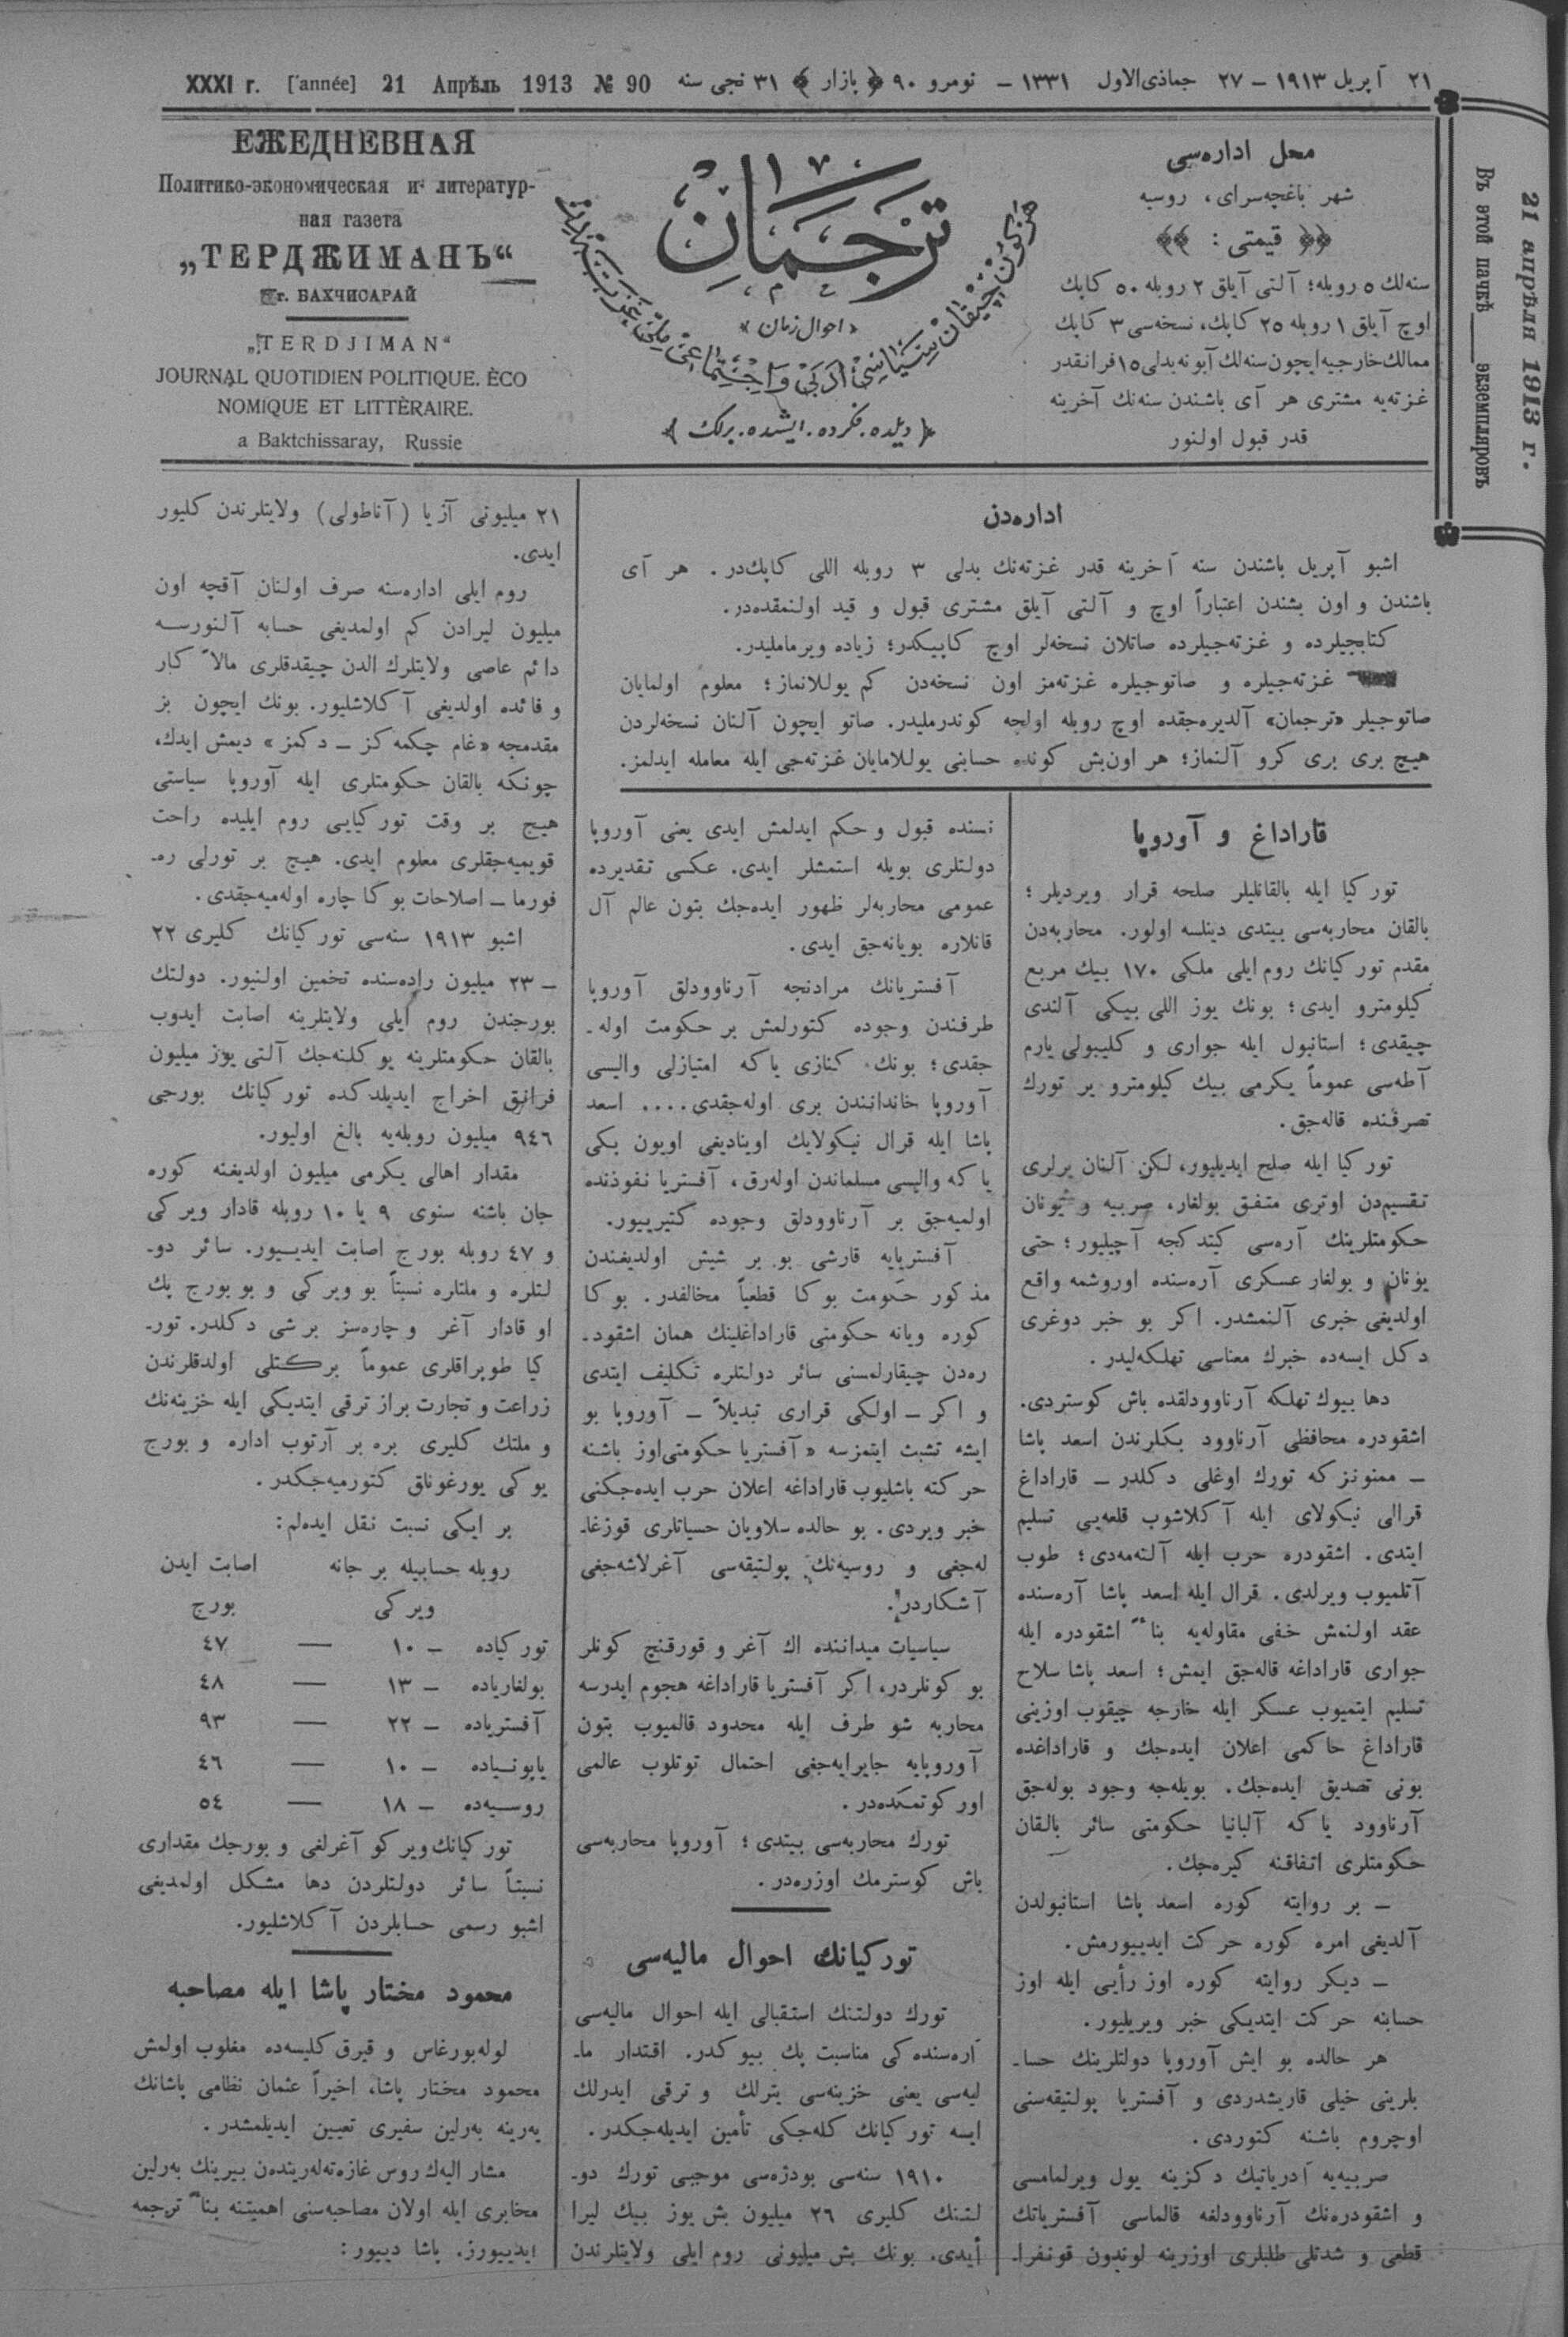 XXXI г. [année] 21 Апрѣль 1913 № 90
٢١ آپریل ١٩١٣ – ٢٧ جماذی‌الاول ١٣٣١ – نومرو ٩٠ ﴿ بازار ﴾ ٣١ نجی سنه
21 апрѣля 1913 г.
Въ этой пачкѣ ___ экземпляровъ
ЕЖЕДНЕВНАЯ
Политико-экономическая и литератур-
ная газета
„ТЕРДЖИМАНЪ“
г. БАХЧИСАРАЙ
„TERDJIMAN“
JOURNAL QUOTIDIEN POLITIQUE. ÈCO
NOMIQUE ET LITTÈRAIRE.
a Baktchissaray, Russie
ترجمان
١٧
﴿احوال زمان﴾
هرکون چیقان سیاسی، ادبی و اجتماعی ملی غزته
﴿ دیلده. فکرده. ایشده. برلك ﴾
محل اداره‌سی
شهر باغچه‌سرای، روسیه
﴿﴿ قیمتی : ﴾﴾
سنه‌لك ٥ روبله؛ آلتی آیلق ٢ روبله ٥٠ کاپك
اوچ آیلق ١ روبله ٢٥ کاپك، نسخه‌سی ٣ کاپك
ممالك خارجیه ایچون سنه‌لك آبونه بدلی ١٥ فرانقدر
غزته‌یه مشتری هر آی باشندن سنه‌نك آخرینه
قدر قبول اولنور
اداره‌دن
اشبو آپریل باشندن سنه آخرینه قدر غزته‌نك بدلی ٣ روبله اللی کاپك‌در. هر آی
باشندن و اون بشندن اعتباراً اوچ و آلتی آیلق مشتری قبول و قید اولنمقده‌در.
کتابجیلرده و غزته‌جیلرده صاتلان نسخه‌لر اوچ کاپیکدر؛ زیاده ویرماملیدر.
غزته‌جیلره و صاتوجیلره غزته‌مز اون نسخه‌دن کم یوللانماز؛ معلوم اولمایان
صاتوجیلر «ترجمان» آلدیره‌جقده اوچ روبله اولجه کوندرملیدر. صاتو ایچون آلنان نسخه‌لردن
هیچ بری بری کرو آلنماز؛ هر اون‌بش کونده حسابنی یوللامایان غزته‌جی ایله معامله ایدلمز.
قاراداغ و آوروپا
تورکیا ایله بالقانلیلر صلحه قرار ویردیلر؛
بالقان محاربه‌سی بیتدی دینلسه اولور. محاربه‌دن
مقدم تورکیانك روم ایلی ملکی ١٧٠ بیك مربع
کیلومترو ایدی؛ بونك یوز اللی بیکی آلندی
چیقدی؛ استانبول ایله جواری و کلیبولی یارم
آطه‌سی عموماً یکرمی بیك کیلومترو یر تورك
تصرفنده قاله‌جق.
تورکیا ایله صلح ایدیلیور، لکن آلنان یرلری
تقسیم‌دن اوتری متفق بولغار، صربیه و یونان
حکومتلرینك آره‌سی کیتدکجه آچیلیور؛ حتی
یونان و بولغار عسکری آره‌سنده اوروشمه واقع
اولدیغی خبری آلنمشدر. اکر بو خبر دوغری
دکل ایسه‌ده خبرك معناسی تهلکه‌لیدر.
دها بیوك تهلکه آرناوودلقده باش کوستردی.
اشقودره محافظی آرناوود بکلرندن اسعد پاشا
– ممنونز که تورك اوغلی دکلدر – قاراداغ
قرالی نیکولای ایله آکلاشوب قلعه‌یی تسلیم
ایتدی. اشقودره حرب ایله آلنه‌مه‌دی؛ طوب
آتلمیوب ویرلدی. قرال ایله اسعد پاشا آره‌سنده
عقد اولنمش خفی مقاوله‌یه بناءً اشقودره ایله
جواری قاراداغه قاله‌جق ایمش؛ اسعد پاشا سلاح
تسلیم ایتمیوب عسکر ایله خارجه چیقوب اوزینی
قاراداغ حاکمی اعلان ایده‌جك و قاراداغده
بونی تصدیق ایده‌جك. بویله‌جه وجود بوله‌جق
آرناوود یاکه آلبانیا حکومتی سائر بالقان
حکومتلری اتفاقنه کیره‌جك.
– بر روایته کوره اسعد پاشا استانبولدن
آلدیغی امره کوره حرکت ایدییورمش.
– دیکر روایته کوره اوز رأیی ایله اوز
حسابنه حرکت ایتدیکی خبر ویریلیور.
هر حالده بو ایش آوروپا دولتلرینك حسا-
بلرینی خیلی قاریشدردی و آفستریا پولتیقه‌سنی
اوچروم باشنه کتوردی.
صربیه‌یه آدریاتیك دکزینه یول ویرلمامسی
و اشقودره‌نك آرناوودلغه قالماسی آفستریاتك
قطعی و شدتلی طلبلری اوزرینه لوندون قونفرا-
نسنده قبول و حکم ایدلمش ایدی یعنی آوروپا
دولتلری بویله استمشلر ایدی. عکسی تقدیرده
عمومی محاربه‌لر ظهور ایده‌جك بتون عالم آل
قانلاره بویانه‌جق ایدی.
آفستریانك مرادنجه آرناوودلق آوروپا
طرفندن وجوده کتورلمش بر حکومت اوله-
جقدی؛ بونك کنازی یاکه امتیازلی والیسی
آوروپا خاندانندن بری اوله‌جقدی.... اسعد
پاشا ایله قرال نیکولایك اوینادیغی اویون یکی
یاکه والیسی مسلماندن اوله‌رق، آفستریا نفوذنده
اولمیه‌جق بر آرناوودلق وجوده کتیرییور.
آفستریایه قارشی بو بر شیش اولدیغندن
مذکور حکومت بوکا قطعیاً مخالفدر. بوکا
کوره ویانه حکومتی قاراداغلینك همان اشقود-
ره‌دن چیقارلمسنی سائر دولتلره تکلیف ایتدی
و اکر – اولکی قراری تبدیلاً – آوروپا بو
ایشه تشبث ایتمزسه «آفستریا حکومتی اوز باشنه
حرکته باشلیوب قاراداغه اعلان حرب ایده‌جکنی
خبر ویردی. بو حالده سلاویان حسیاتلری قوزغا-
له‌جغی و روسیه‌نك پولتیقه‌سی آغرلاشه‌جغی
آشکاردر.
سیاسیات میداننده اك آغر و قورقنچ کونلر
بو کونلردر، اکر آفستریا قاراداغه هجوم ایدرسه
محاربه شو طرف ایله محدود قالمیوب بتون
آوروپایه جایرایه‌جغی احتمال توتلوب عالمی
اورکوتمکده‌در.
تورك محاربه‌سی بیتدی؛ آوروپا محاربه‌سی
باش کوسترمك اوزره‌در.
تورکیانك احوال مالیه‌سی
تورك دولتنك استقبالی ایله احوال مالیه‌سی
آره‌سنده‌کی مناسبت پك بیوکدر. اقتدار ما-
لیه‌سی یعنی خزینه‌سی یترلك و ترقی ایدرلك
ایسه تورکیانك کله‌جکی تأمین ایدیله‌جکدر.
١٩١٠ سنه‌سی بودژه‌سی موجبی تورك دو-
لتنك کلیری ٢٦ میلیون بش یوز بیك لیرا
أیدی. بونك بش میلیونی روم ایلی ولایتلرندن
٢١ میلیونی آزیا (آناطولی) ولایتلرندن کلیور
ایدی.
روم ایلی اداره‌سنه صرف اولنان آقچه اون
میلیون لیرادن کم اولمدیغی حسابه آلنورسه
دائم عاصی ولایتلرك الدن چیقدقلری مالاً کار
و فائده اولدیغی آکلاشلیور. بونك ایچون بز
مقدمجه «غام چکمه‌کز – دکمز» دیمش ایدك،
چونکه بالقان حکومتلری ایله آوروپا سیاستی
هیچ بر وقت تورکیایی روم ایلیده راحت
قویمیه‌جقلری معلوم ایدی. هیچ بر تورلی ره-
فورما – اصلاحات بوکا چاره اوله‌میه‌جقدی.
اشبو ١٩١٣ سنه‌سی تورکیانك کلیری ٢٢
– ٢٣ میلیون راده‌سنده تخمین اولنیور. دولتك
بورجندن روم ایلی ولایتلرینه اصابت ایدوب
بالقان حکومتلرینه یوکلنه‌جك آلتی یوز میلیون
فرانق اخراج ایدیلدکده تورکیانك بورجی
٩٤٦ میلیون روبله‌یه بالغ اولیور.
مقدار اهالی یکرمی میلیون اولدیغنه کوره
جان باشنه سنوی ٩ یا ١٠ روبله قادار ویرکی
و ٤٧ روبله بورج اصابت ایدییور. سائر دو-
لتلره و ملتلره نسبتاً بو ویرکی و بو بورج پك
او قادار آغر و چاره‌سز بر شی دکلدر. تور-
کیا طوپراقلری عموماً برکتلی اولدقلرندن
زراعت و تجارت براز ترقی ایتدیکی ایله خزینه‌نك
و ملتك کلیری بره بر آرتوب اداره و بورج
یوکی یورغوناق کتورمیه‌جکدر.
بر ایکی نسبت نقل ایده‌لم:
روبله حسابیله بر جانه اصابت ایدن
ویرکی بورج
تورکیاده – ١٠ — ٤٧
بولغاریاده – ١٣ — ٤٨
آفستریاده – ٢٢ — ٩٣
یاپونیاده – ١٠ — ٤٦
روسیه‌ده – ١٨ — ٥٤
تورکیانك ویرکو آغرلغی و بورجك مقداری
نسبتاً سائر دولتلردن دها مشکل اولمدیغی
اشبو رسمی حسابلردن آکلاشلیور.
محمود مختار پاشا ایله مصاحبه
لوله‌بورغاس و قیرق کلیسه‌ده مغلوب اولمش
محمود مختار پاشا، اخیراً عثمان نظامی پاشانك
یه‌رینه به‌رلین سفیری تعیین ایدیلمشدر.
مشار الیه‌ك روس غازه‌ته‌له‌رینده‌ن بیرینك به‌رلین
مخابری ایله اولان مصاحبه‌سنی اهمیتنه بناءً ترجمه
ایدییورز. پاشا دییور: